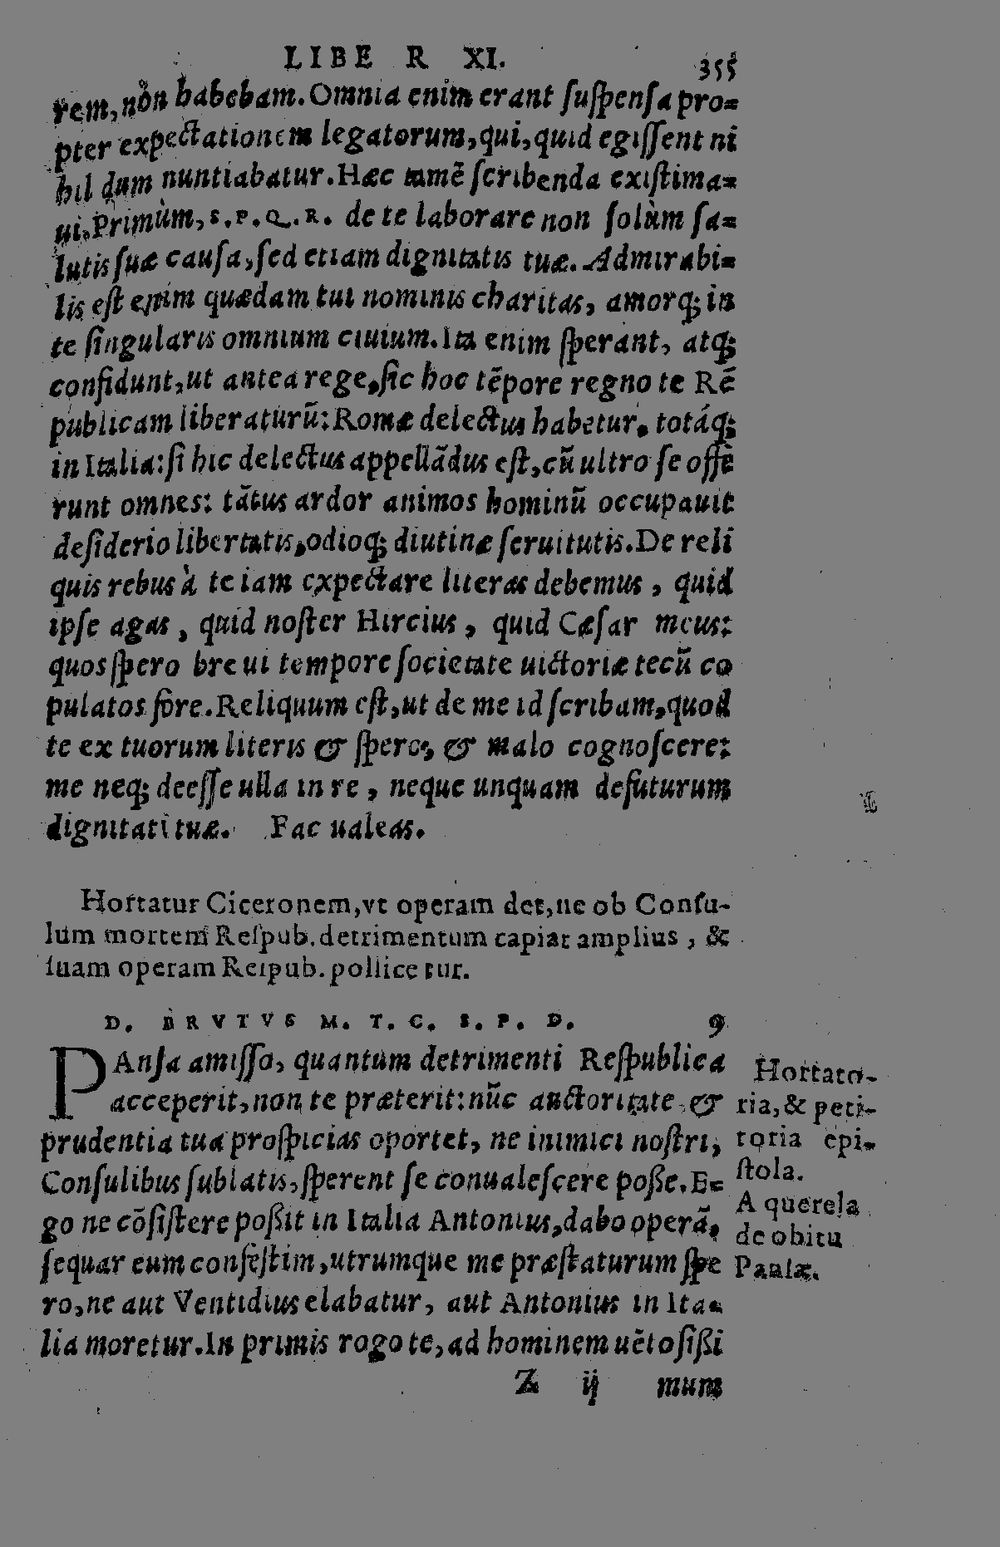 LIBER XI. 355
rem, non habebam. Omnia enim erant ſuſpenſa pro=
pter expectationem legatorum, qui, quid egiſſent ni
hil dum nuntiabatur. Hæc tamē ſcribenda exiſtima=
ui. Primùm, S. P. Q. R. de te laborare non ſolùm ſa=
lutis ſuæ cauſa, ſed etiam dignitatis tuæ. Admirabi=
lis eſt enim quædam tui nominis charitas, amorq; in
te ſingularis omnium ciuium. Ita enim ſperant, atq;
confidunt, ut antea rege, ſic hoc tēpore regno te Rē
publicam liberaturū: Romæ delectus habetur, totáq;
in Italia: ſi hic delectus appellādus eſt, cū ultro ſe offe
runt omnes: tātus ardor animos hominū occupauit
deſiderio libertatis, odioq; diutinæ ſeruitutis. De reli
quis rebus à te iam expectare literas debemus, quid
ipſe agas, quid noſter Hircius, quid Cæſar meus:
quos ſpero breui tempore ſocietate uictoriæ tecū co
pulatos fore. Reliquum eſt, ut de me id ſcribam, quod
te ex tuorum literis & ſpero, & malo cognoſcere:
me neq; deeſſe ulla in re, neque unquam defuturum
dignitati tuæ. Fac ualeas.
Hortatur Ciceronem, vt operam det, ne ob Conſu-
lum mortem Reſpub. detrimentum capiat amplius, &
ſuam operam Reipub. pollicetur.
D. BRVTVS M. T. C. S. P. D. 9
PAnſa amiſſo, quantum detrimenti Reſpublica
acceperit, non te præterit: nūc auctoritate &
prudentia tua proſpicias oportet, ne inimici noſtri,
Conſulibus ſublatis, ſperent ſe conualeſcere poße. E=
go ne cōſiſtere poßit in Italia Antonius, dabo operā,
ſequar eum confeſtim, utrumque me præſtaturum ſpe
ro, ne aut Ventidius elabatur, aut Antonius in Ita=
lia moretur. In primis rogo te, ad hominem uētoſißi
Z ij mum
Hortato-
ria, & peti-
toria epi-
ſtola.
A querela
de obitu
Panſæ.